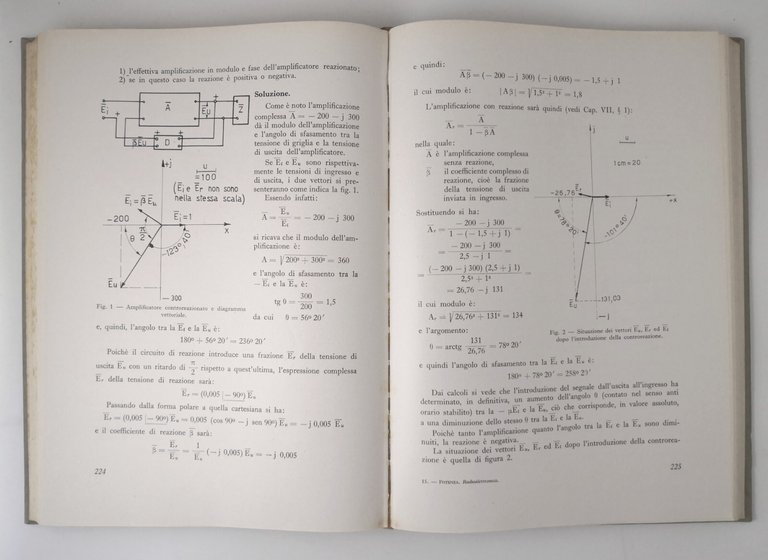 1) l'effettiva amplificazione in modulo e fase dell'amplificatore reazionato;
2) se in questo caso la reazione è positiva o negativa.
Ei
A
Eu
Z
βEu
D
+j
u
=100
(Ei e Er non sono
nella stessa scala)
Ei = β Eu
-200
Ei=1
θ
π/2
-123°,40'
x
Eu
-300
Fig. 1 — Amplificatore controreazionato e diagramma
vettoriale.
Soluzione.
Come è noto l'amplificazione
complessa A = — 200 — j 300
dà il modulo dell'amplificazione
e l'angolo di sfasamento tra la
tensione di griglia e la tensione
di uscita dell'amplificatore.
Se Ei e Eu sono rispettiva-
mente le tensioni di ingresso e
di uscita, i due vettori si pre-
senteranno come indica la fig. 1.
Essendo infatti:
A = Eu / Ei = — 200 — j 300
si ricava che il modulo dell'am-
plificazione è:
A = √200² + 300² = 360
e l'angolo di sfasamento tra la
— Ei e la Eu è:
tg θ = 300 / 200 = 1,5
da cui θ = 56º 20'
e, quindi, l'angolo tra la Ei e la Eu è:
180º + 56º 20' = 236º 20'
Poichè il circuito di reazione introduce una frazione Er della tensione di
uscita Eu con un ritardo di π/2 rispetto a quest'ultima, l'espressione complessa
Er della tensione di reazione sarà:
Er = (0,005 |— 90º) Eu
Passando dalla forma polare a quella cartesiana si ha:
Er = (0,005 |— 90º) Eu = 0,005 (cos 90º — j sen 90º) Eu = — j 0,005 Eu
e il coefficiente di reazione β sarà:
β = Er / Eu = 1 / Eu (— j 0,005) Eu = — j 0,005
224
e quindi:
Aβ = (— 200 — j 300) (— j 0,005) = — 1,5 + j 1
il cui modulo è: |Aβ| = √1,5² + 1² = 1,8
L'amplificazione con reazione sarà quindi (vedi Cap. VII, § 1):
Ar = A / 1 — βA
nella quale:
A è l'amplificazione complessa
senza reazione,
β il coefficiente complesso di
reazione, cioè la frazione
della tensione di uscita
inviata in ingresso.
Sostituendo si ha:
Ar = — 200 — j 300 / 1 — (— 1,5 + j 1) =
= — 200 — j 300 / 2,5 — j 1 =
= (— 200 — j 300) (2,5 + j 1) / 2,5² + 1² =
= — 26,76 — j 131
il cui modulo è:
Ar = √26,76² + 131² = 134
e l'argomento:
θ = arctg 131 / 26,76 = 78º 20'
j
u
1cm=20
-26,76
Er
Ei
+x
θ=78°20'
-101°40'
Eu
-131,03
-j
Fig. 2 — Situazione dei vettori Eu, Er ed Ei
dopo l'introduzione della controreazione.
e quindi l'angolo di sfasamento tra la Ei e la Eu è:
180º + 78º 20' = 258º 20'
Dai calcoli si vede che l'introduzione del segnale dall'uscita all'ingresso ha
determinato, in definitiva, un aumento dell'angolo θ (contato nel senso anti
orario stabilito) tra la — μEi e la Eu, ciò che corrisponde, in valore assoluto,
a una diminuzione dello stesso θ tra la Ei e la Eu.
Poichè tanto l'amplificazione quanto l'angolo tra la Ei e la Eu sono dimi-
nuiti, la reazione è negativa.
La situazione dei vettori Eu, Er ed Ei dopo l'introduzione della controrea-
zione è quella di figura 2.
225
15. — Potenza. Radioelettronica.